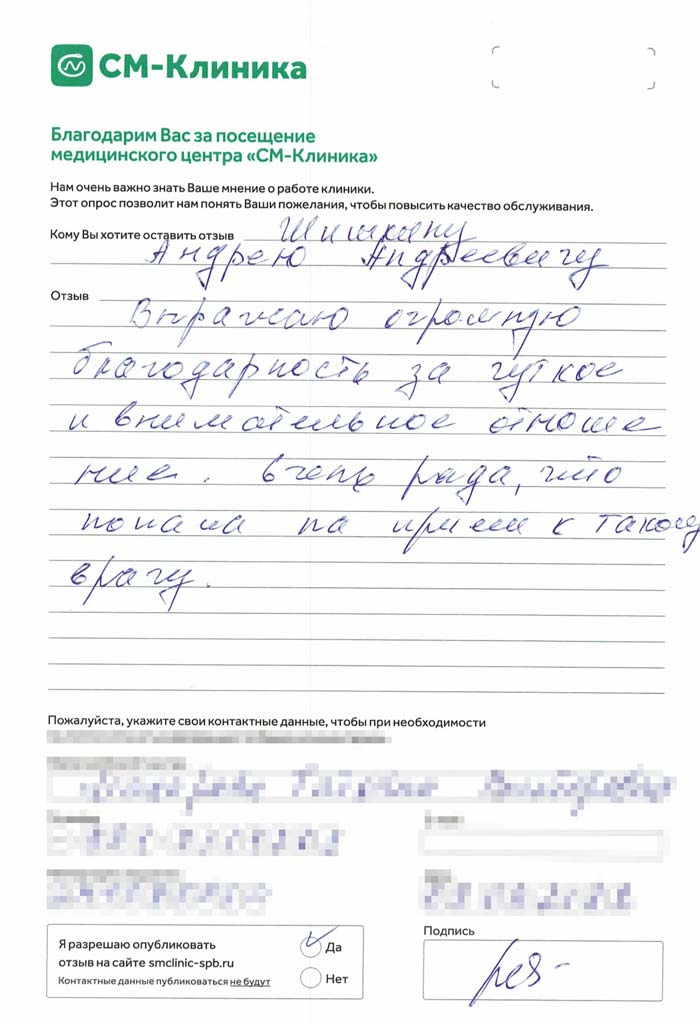 СМ-Клиника
Благодарим Вас за посещение
медицинского центра «СМ-Клиника»
Нам очень важно знать Ваше мнение о работе клиники.
Этот опрос позволит нам понять Ваши пожелания, чтобы повысить качество обслуживания.
Кому Вы хотите оставить отзыв Шишкину
Андрею Андреевичу
Отзыв
Выражаю огромную
благодарность за чуткое
и внимательное отноше
ние. Очень рада, что
попала на прием к такому
врачу.
Пожалуйста, укажите свои контактные данные, чтобы при необходимости
Я разрешаю опубликовать
отзыв на сайте smclinic-spb.ru
Контактные данные публиковаться не будут
Да
Нет
Подпись